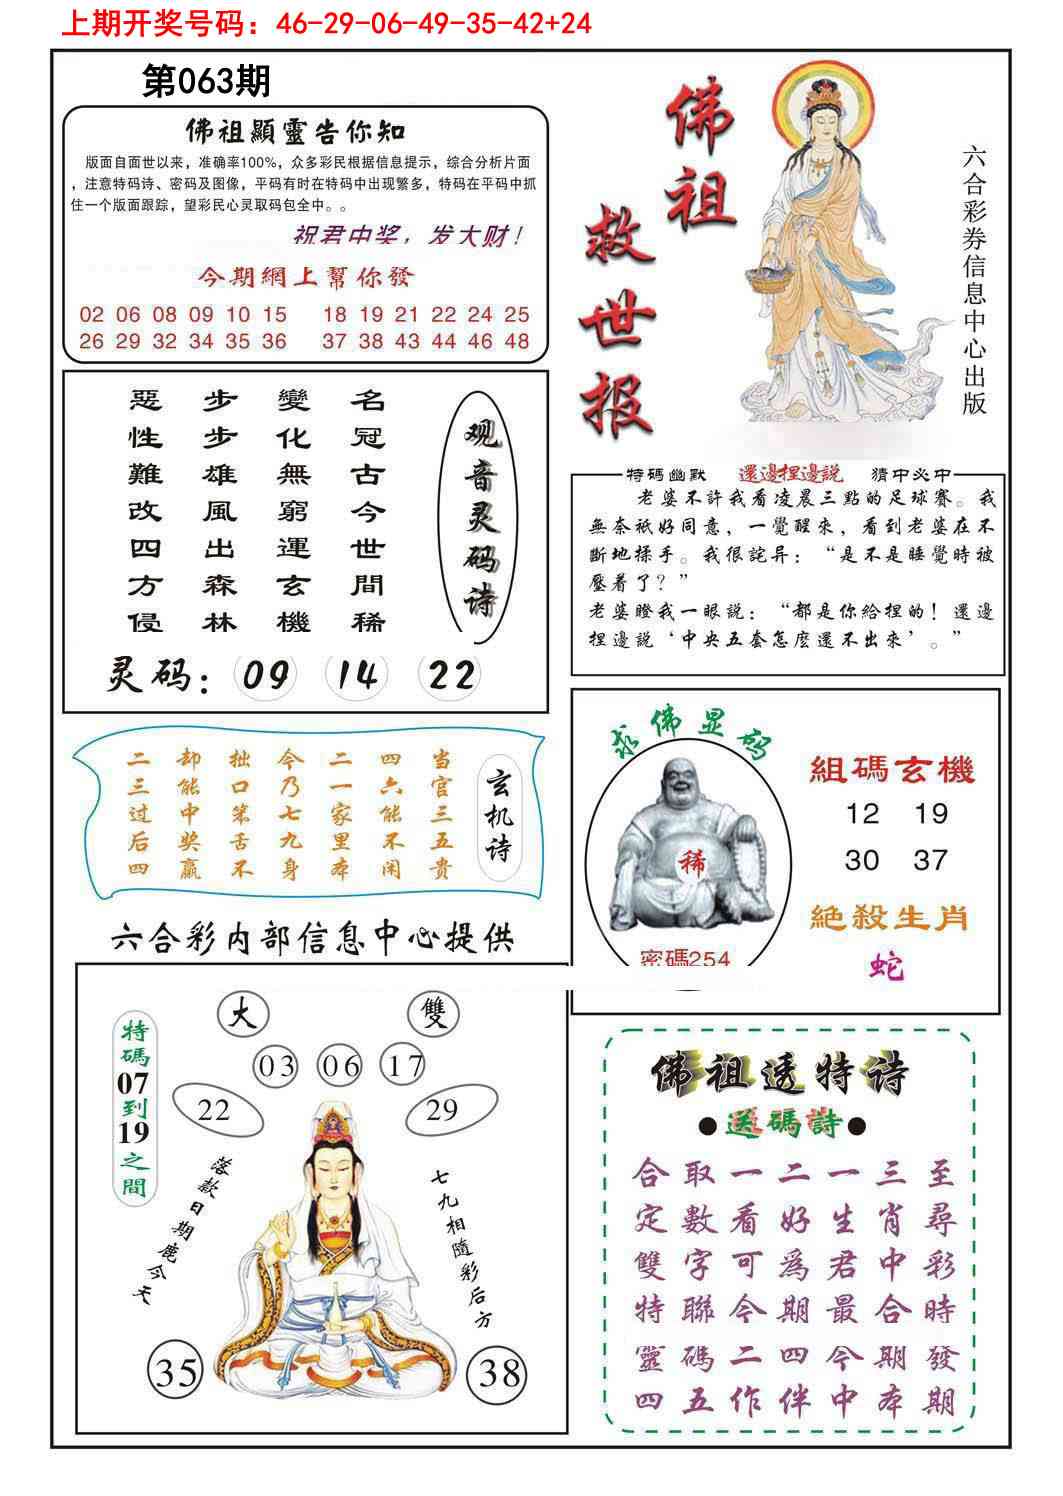 上期开奖号码：46-29-06-49-35-42+24
第063期
佛祖顯靈告你知
版面自面世以来，准确率100%，众多彩民根据信息提示，综合分析片面
，注意特码诗、密码及图像，平码有时在特码中出现繁多，特码在平码中抓
住一个版面跟踪，望彩民心灵取码包全中。。
祝君中奖，发大财！
今期網上幫你發
02 06 08 09 10 15 18 19 21 22 24 25
26 29 32 34 35 36 37 38 43 44 46 48
佛祖
救世报
六合彩券信息中心出版
观音灵码诗
名冠古今世間稀
變化無窮運玄機
步步雄風出森林
惡性難改四方侵
灵码：09 14 22
特碼幽默 還邊捏邊説 猜中必中
老婆不許我看凌晨三點的足球賽。我
無奈祇好同意，一覺醒來，看到老婆在不
斷地揉手。我很詫异：“是不是睡覺時被
壓着了？”
老婆瞪我一眼説：“都是你給捏的！還邊
捏邊説‘中央五套怎麽還不出來’。”
玄机诗
当官三五贵
四六能不闲
二一家里本
今乃七九身
拙口笨舌不
却能中奖赢
二三过后四
求佛显码
稀
密碼254
組碼玄機
12 19
30 37
絕殺生肖
蛇
六合彩内部信息中心提供
大 雙
03 06 17
22 29
特碼07到19之間
落款日期鹿今天
七九相隨彩后方
35 38
佛祖透特诗
●送碼詩●
合取一二一三至
定數看好生肖尋
雙字可為君中彩
特聯今期最合時
靈碼二四今期發
四五作伴中本期